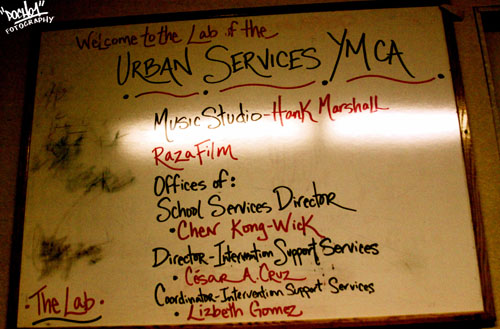 "DOCHO1"
FOTOGRAPHY
Welcome to the Lab if the
URBAN SERVICES YMCA
Music Studio - Hank Marshall
RazaFilm
Offices of:
School Services Director
• Chen Kong-Wick
Director-Intervention Support Services
• César A. Cruz
Coordinator-Intervention Support Services
• Lizbeth Gomez
• The Lab •